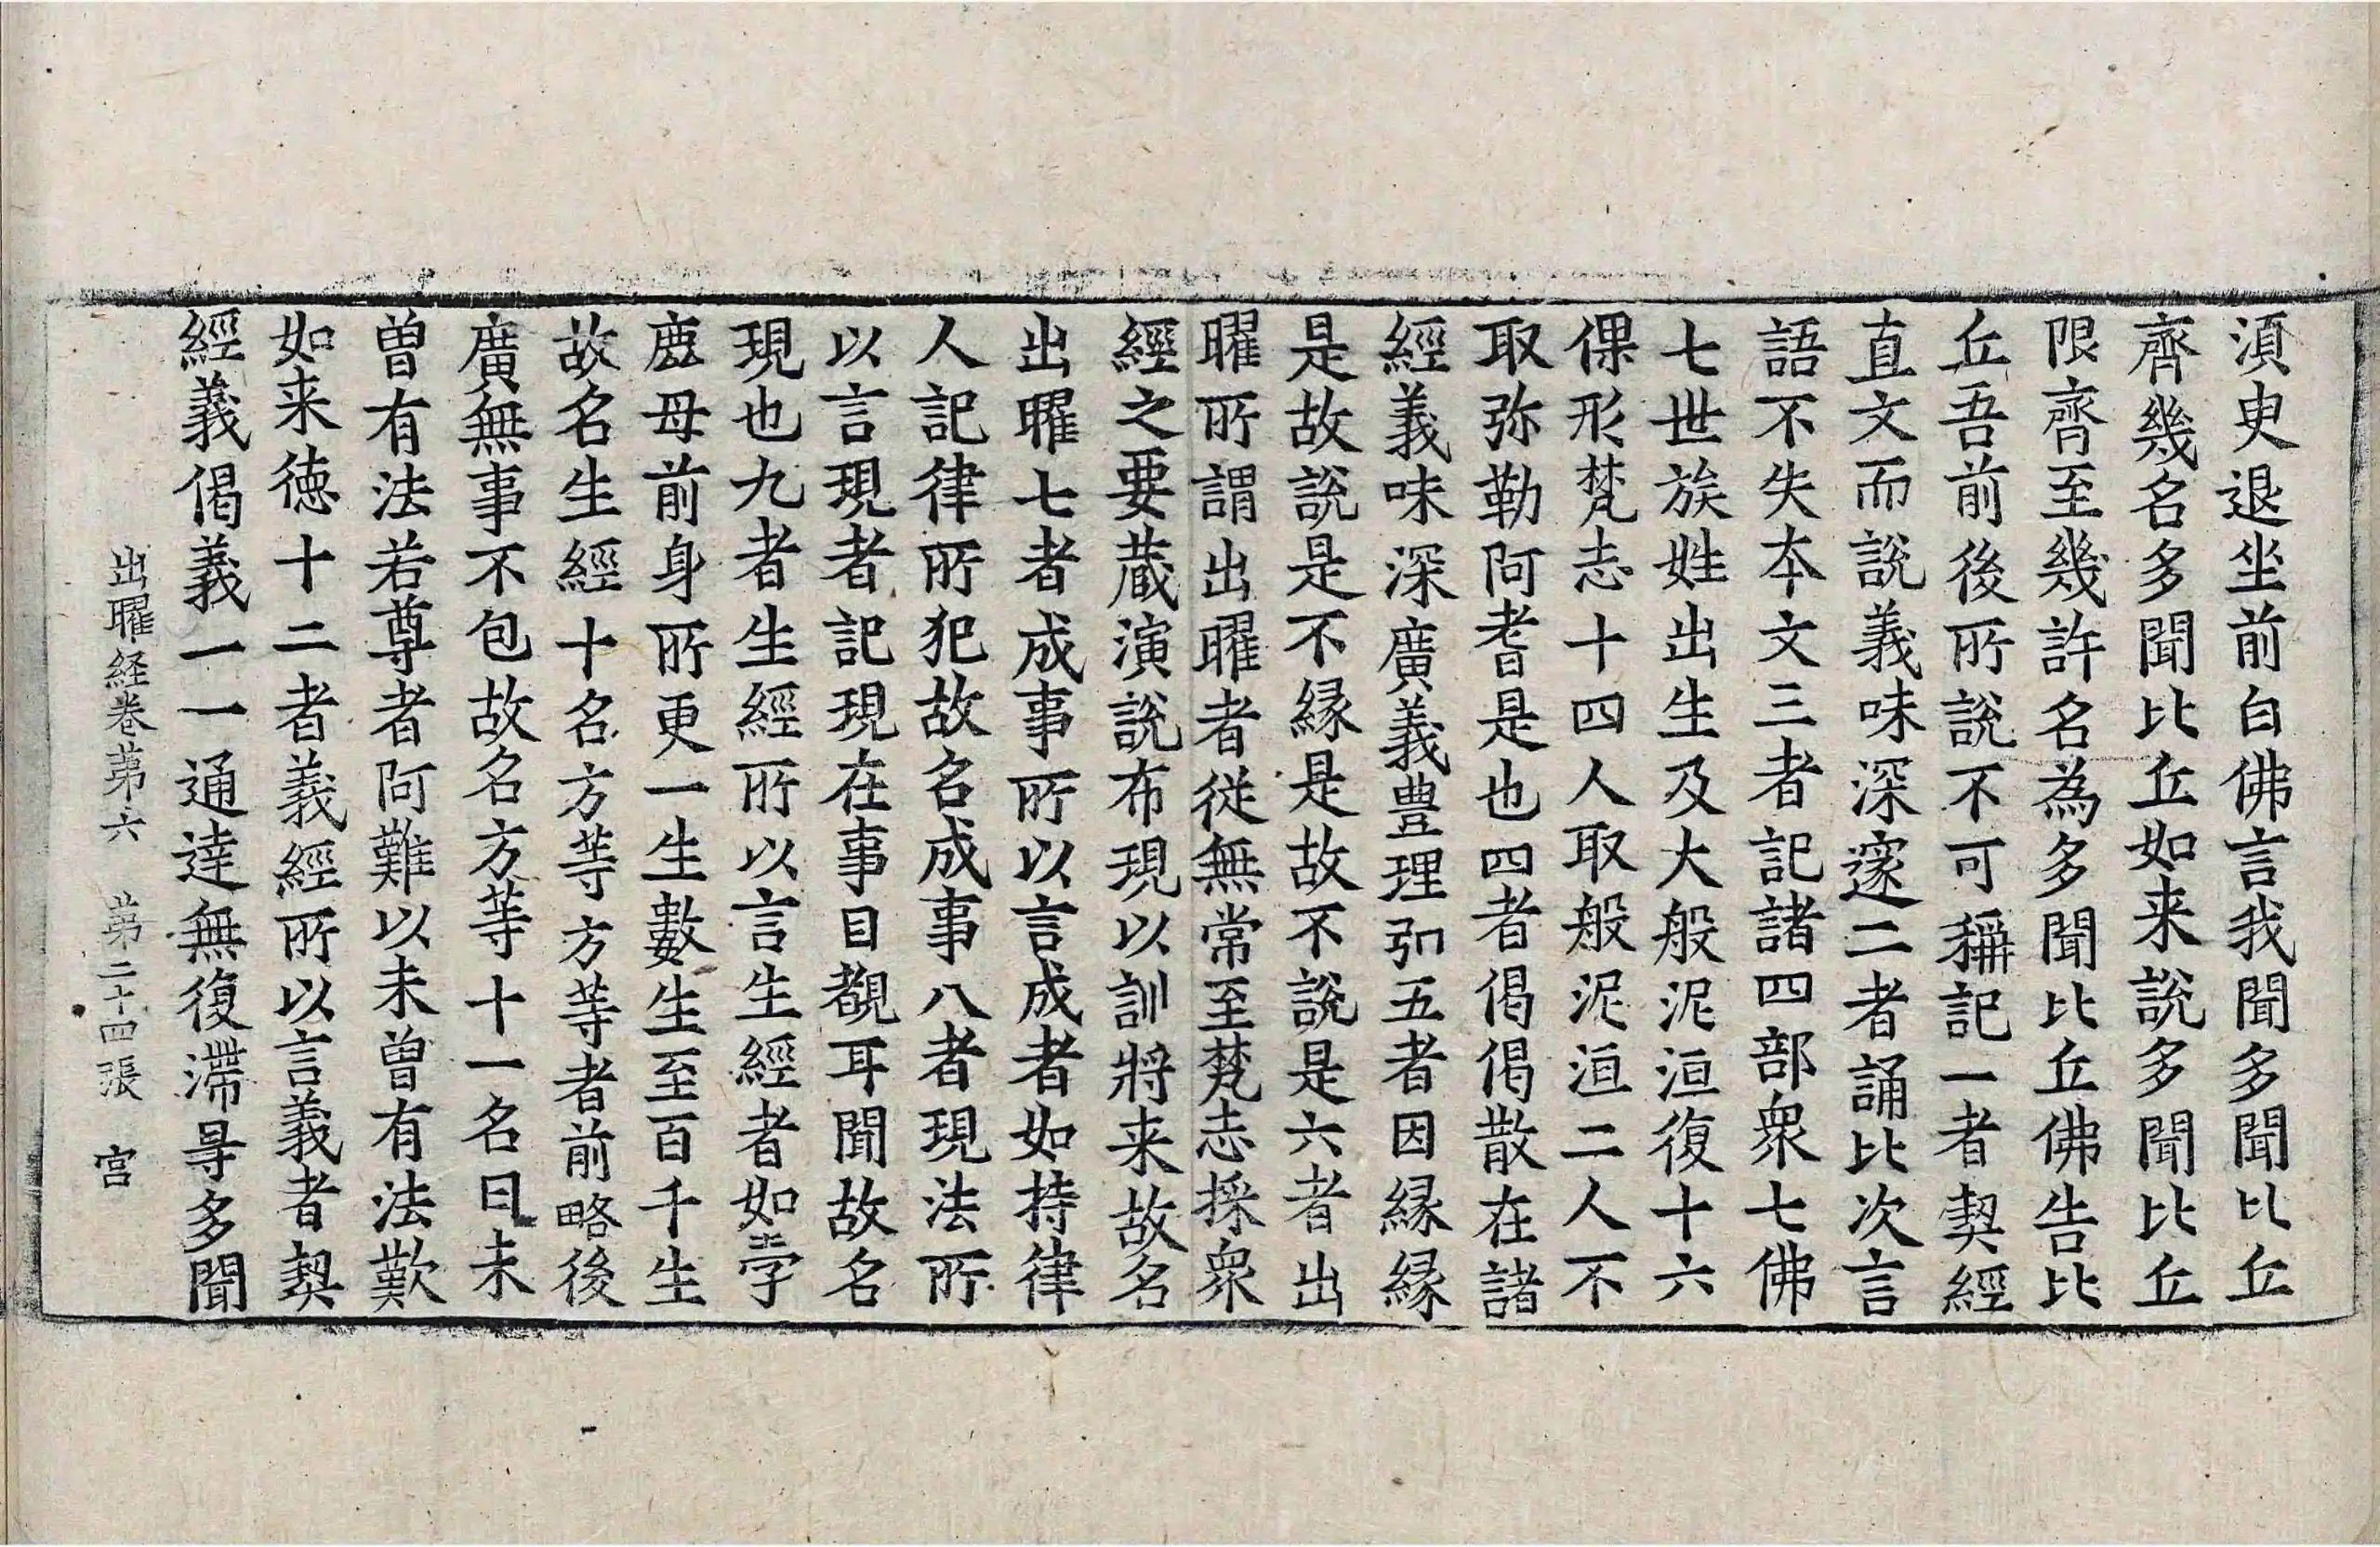 湏臾退坐前白佛言我聞多聞比丘
齊幾名多聞比丘如来說多聞比丘
限齊至幾許名為多聞比丘佛告比
丘吾前後所說不可稱記一者契經
直文而說義味深邃二者誦比次言
語不失本文三者記諸四部衆七佛
七世族姓出生及大般泥洹復十六
倮形梵志十四人取般泥洹二人不
取弥勒阿耆是也四者偈偈散在諸
經義味深廣義豊理弘五者因縁縁
是故說是不縁是故不說是六者出
曜所謂出曜者從無常至梵志採衆
經之要蔵演說布現以訓將来故名
出曜七者成事所以言成者如持律
人記律所犯故名成事八者現法所
以言現者記現在事目覩耳聞故名
現也九者生經所以言生經者如孛
鹿母前身所更一生數生至百千生
故名生經十名方等方等者前略後
廣無事不包故名方等十一名曰未
曽有法若尊者阿難以未曽有法歎
如来徳十二者義經所以言義者契
經義偈義一一通達無復滯㝵多聞
出曜経卷苐六 苐二十四張 宫